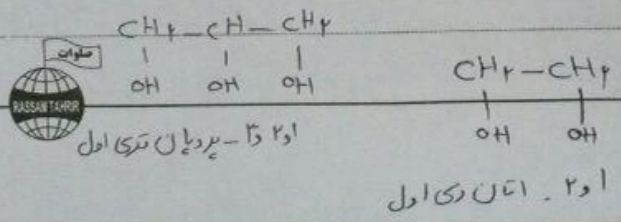 CH۲–CH–CH۲
OH OH OH
صلوات
PASSAN TAHRIR
۱و۲و۳ – پروپان تری اول
CH۲–CH۲
OH OH
۱و۲ . اتان دی اول